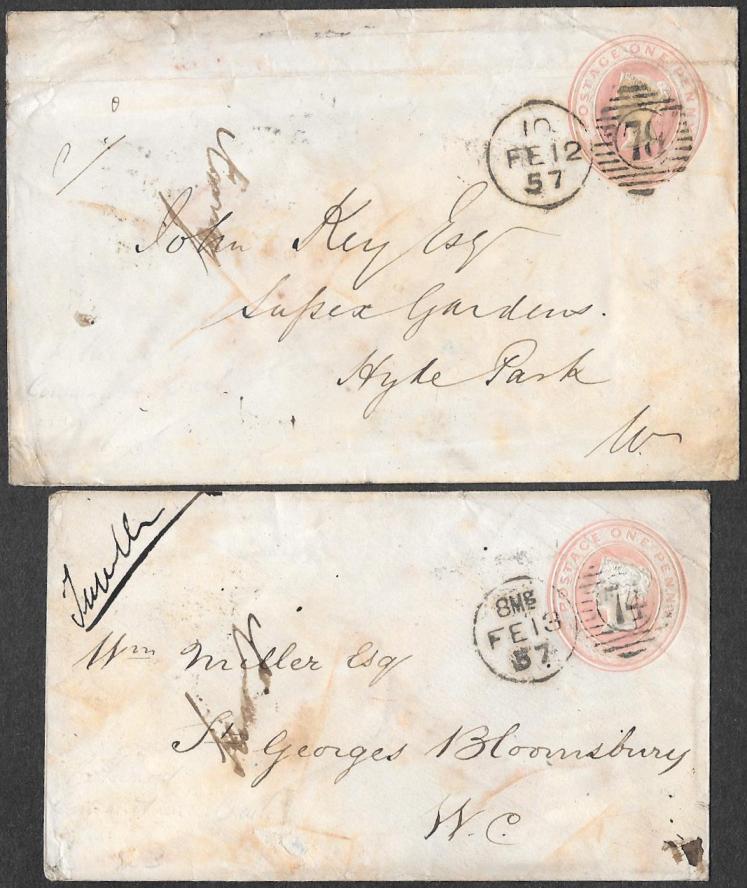 POSTAGE ONE PENNY
10
FE 12
57
78
John Key Esq
Sussex Gardens.
Hyde Park
W.
POSTAGE ONE PENNY
8Mg
FE 13
57
74
Wm Miller Esq
St Georges Bloomsbury
W.C.